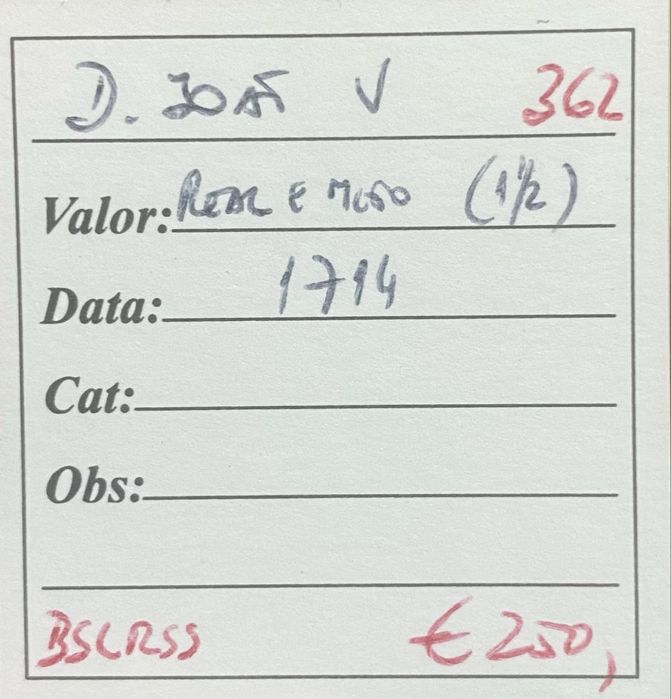 D. João V 362
Valor: Real e meio (1 1/2)
Data: 1714
Cat:
Obs:
BSCRSS € 250,